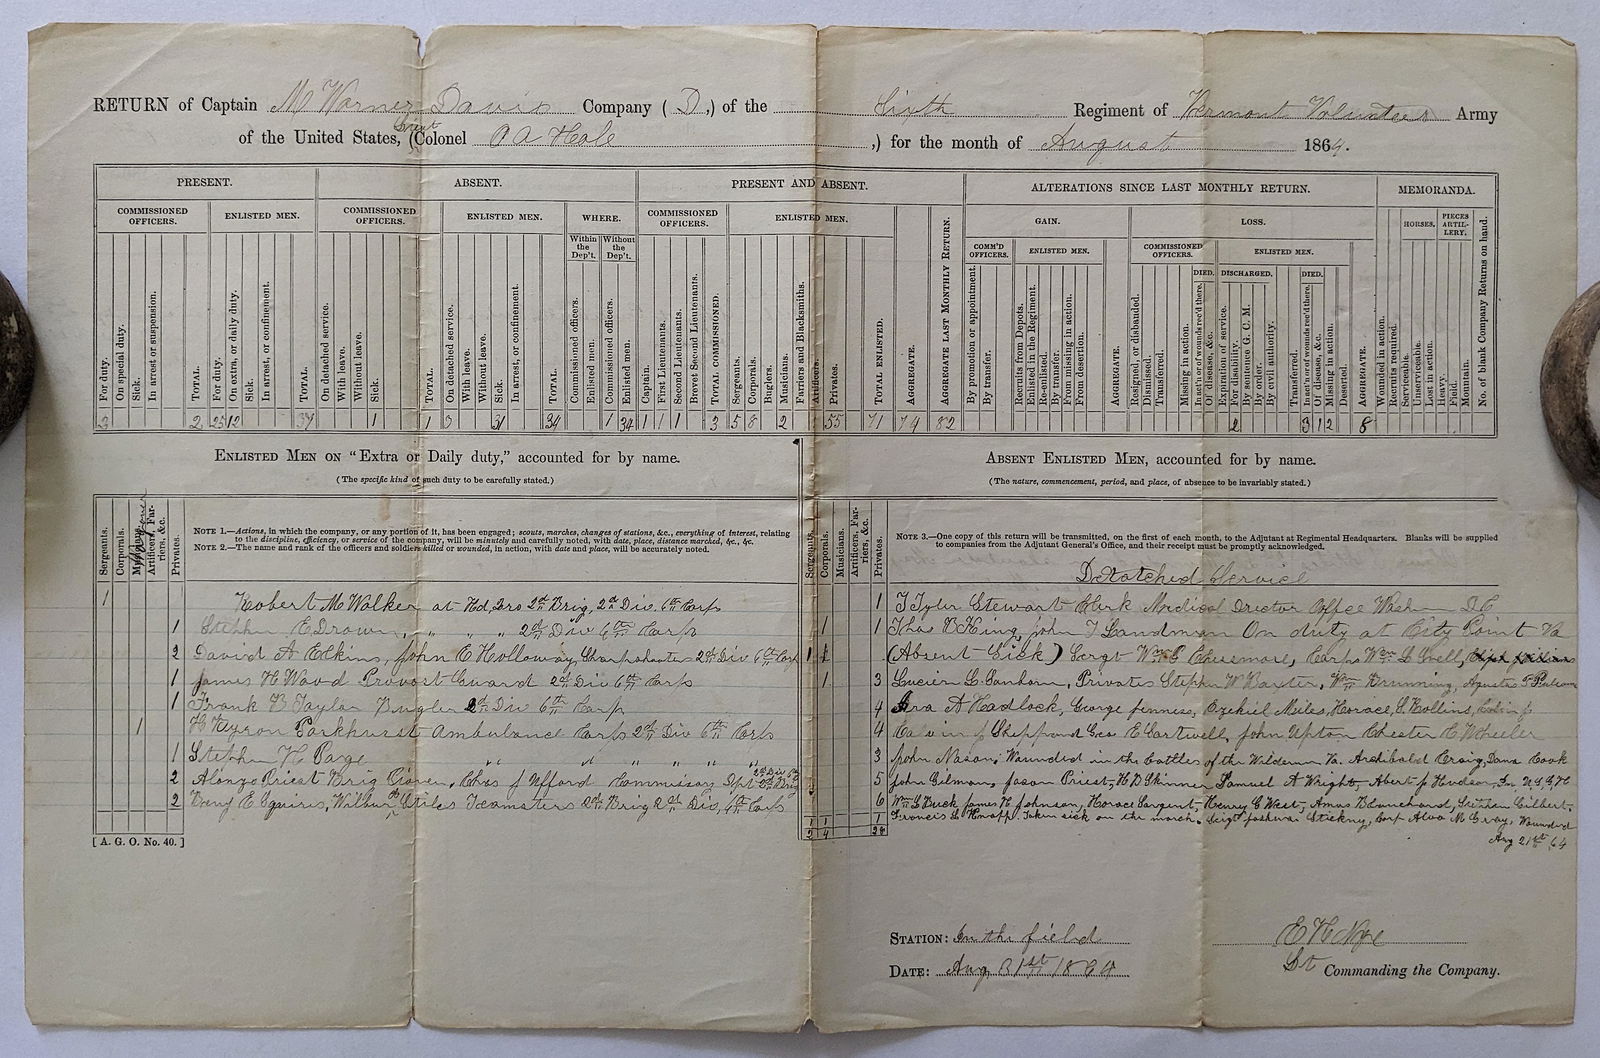 RETURN of Captain M Warner Davis Company ( D,) of the Sixth Regiment of Vermont Volunteers Army
of the United States, (Lieut Colonel O A Hale ,) for the month of August 1864.
PRESENT. ABSENT. PRESENT AND ABSENT. ALTERATIONS SINCE LAST MONTHLY RETURN. MEMORANDA.
COMMISSIONED OFFICERS. ENLISTED MEN. COMMISSIONED OFFICERS. ENLISTED MEN. WHERE. COMMISSIONED OFFICERS. ENLISTED MEN. GAIN. LOSS. HORSES. PIECES ARTILLERY.
Within the Dep't. Without the Dep't. COMM'D OFFICERS. ENLISTED MEN. COMMISSIONED OFFICERS. ENLISTED MEN.
DIED. DISCHARGED. DIED.
For duty. On special duty. Sick. In arrest or suspension. TOTAL. For duty. On extra, or daily duty. Sick. In arrest, or confinement. TOTAL. On detached service. With leave. Without leave. Sick. TOTAL. On detached service. With leave. Without leave. Sick. In arrest, or confinement. TOTAL. Commissioned officers. Enlisted men. Commissioned officers. Enlisted men. Captain. First Lieutenants. Second Lieutenants. Brevet Second Lieutenants. TOTAL COMMISSIONED. Sergeants. Corporals. Buglers. Musicians. Farriers and Blacksmiths. Artificers. Privates. TOTAL ENLISTED. AGGREGATE. AGGREGATE LAST MONTHLY RETURN. By promotion or appointment. By transfer. Recruits from Depots. Enlisted in the Regiment. Re-enlisted. By transfer. From missing in action. From desertion. AGGREGATE. Resigned, or disbanded. Dismissed. Transferred. Missing in action. In act'n or of wounds rec'd there. Of disease, &c. Expiration of service. For disability. By sentence G. C. M. By order. By civil authority. Transferred. In act'n or of wounds rec'd there. Of disease, &c. Missing in action. Deserted. AGGREGATE. Wounded in action. Recruits required. Serviceable. Unserviceable. Lost in action. Heavy. Field. Mountain. No. of blank Company Returns on hand.
2 2 25 12 37 1 1 3 31 34 1 34 1 1 1 3 5 8 2 55 71 74 82 2 3 1 2 8
ENLISTED MEN ON "Extra or Daily duty," accounted for by name. ABSENT ENLISTED MEN, accounted for by name.
(The specific kind of such duty to be carefully stated.) (The nature, commencement, period, and place, of absence to be invariably stated.)
Sergeants. Corporals. Musicians. Artificers, Farriers, &c. Privates.
NOTE 1.—Actions, in which the company, or any portion of it, has been engaged; scouts, marches, changes of stations, &c., everything of interest, relating
to the discipline, efficiency, or service of the company, will be minutely and carefully noted, with date, place, distance marched, &c., &c.
NOTE 2.—The name and rank of the officers and soldiers killed or wounded, in action, with date and place, will be accurately noted.
1 Robert M Walker at Hd, Qrs 2nd Brig, 2d Div. 6th Corps
1 Stephen E Drown, " " " 2nd Div 6th Corps
2 David A Elkins, John E Holloway, Sharpshooter 2nd Div 6th Corps
1 James H Wood Provost Guard 2d Div 6th Corps
1 Frank B Taylor Bugler 2d Div 6th Corp
1 H Hyron Parkhurst Ambulance Corps 2d Div 6th Corps
1 Stephen H Page " " " " "
2 Alonzo Priest Brig Pioneer, Chas J Ufford Commissary Dept 2nd Brig 2nd Div 6th
2 Benj E Squires, Wilbur Stiles Teamsters 2nd Brig 2nd Div, 6th Corps
[ A. G. O. No. 40. ]
Sergeants. Corporals. Musicians. Artificers, Farriers, &c. Privates.
NOTE 3.—One copy of this return will be transmitted, on the first of each month, to the Adjutant at Regimental Headquarters. Blanks will be supplied
to companies from the Adjutant General's Office, and their receipt must be promptly acknowledged.
Detatched Service
1 T Tyler Stewart Clerk Medical Director Office Washn D C
1 1 Thos B King, John T Landman On duty at City Point Va
1 1 (Absent Sick) Sergt Wm Corps Wm L
1 3 Lucien L Sanborn, Privates Stephen W Baxter, Wm Brunning,
4 Ira A Hadlock, George Jennise, Ezekiel Miles, Horace, S Hollins,
4 Calvin J Sheppard Geo E Sartwell, John Upton Chester C Wheeler
3 John Nason, Wounded in the battles of the Wildernss Va. Archibald Craig, Dana Cook
5 John Gilman, Jason Priest, H D Skinner Samuel A Wright, Albert J Hudson, In U.S.G.H
6 Wm L Buck James W Johnson, Horace Sargent, Henry C West, Amos Blanchard, Stephen Gilbert.
1 1 1 Francis L Knapp Taken sick on the march. Sergt Joshua Stickny, Corp Alva M Gray, Wounded
2 4 28 Aug 21st 64
STATION: In the field E H Nye
DATE: Aug, 31st 1864 Lt Commanding the Company.